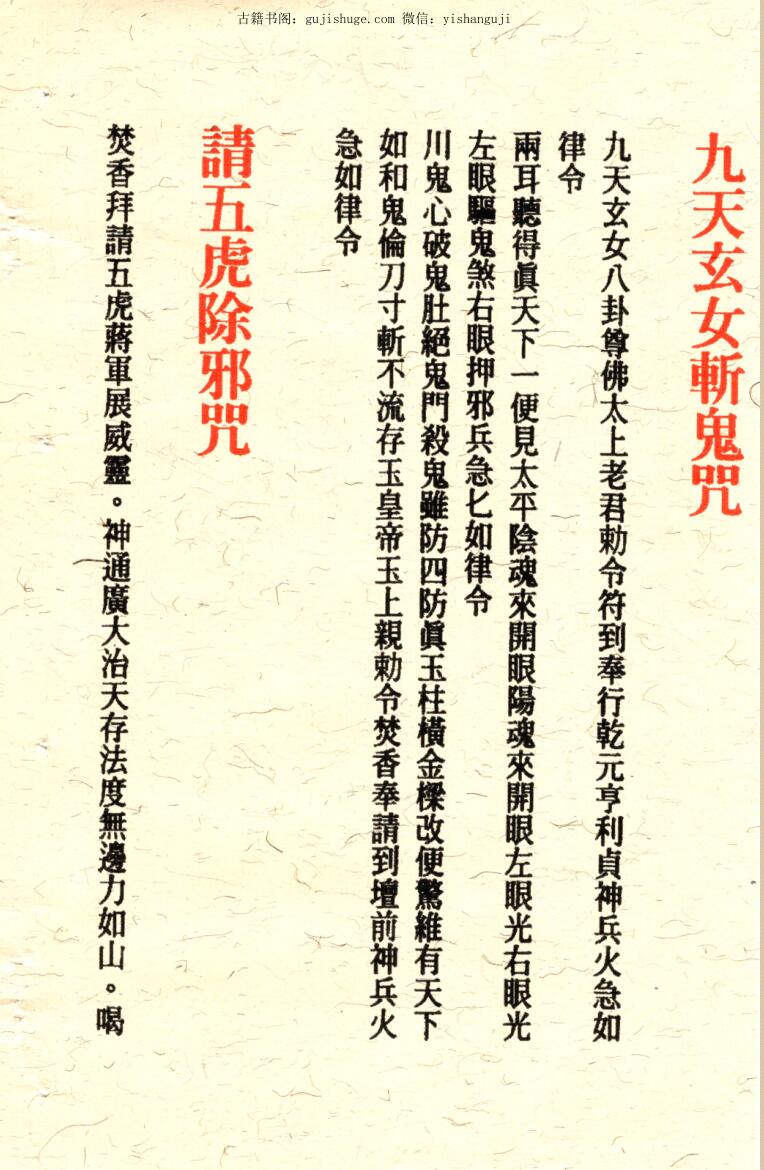 古籍书阁：gujishuge.com 微信：yishanguji
九天玄女斬鬼咒
九天玄女八卦尊佛太上老君勅令符到奉行乾元亨利貞神兵火急如
律令
兩耳聽得眞天下一便見太平陰魂來開眼陽魂來開眼左眼光右眼光
左眼驅鬼煞右眼押邪兵急匕如律令
川鬼心破鬼肚絕鬼門殺鬼雖防四防眞玉柱橫金樑改便驚維有天下
如和鬼倫刀寸斬不流存玉皇帝玉上親勅令焚香奉請到壇前神兵火
急如律令
請五虎除邪咒
焚香拜請五虎蔣軍展威靈。神通廣大治天存法度無邊力如山。喝